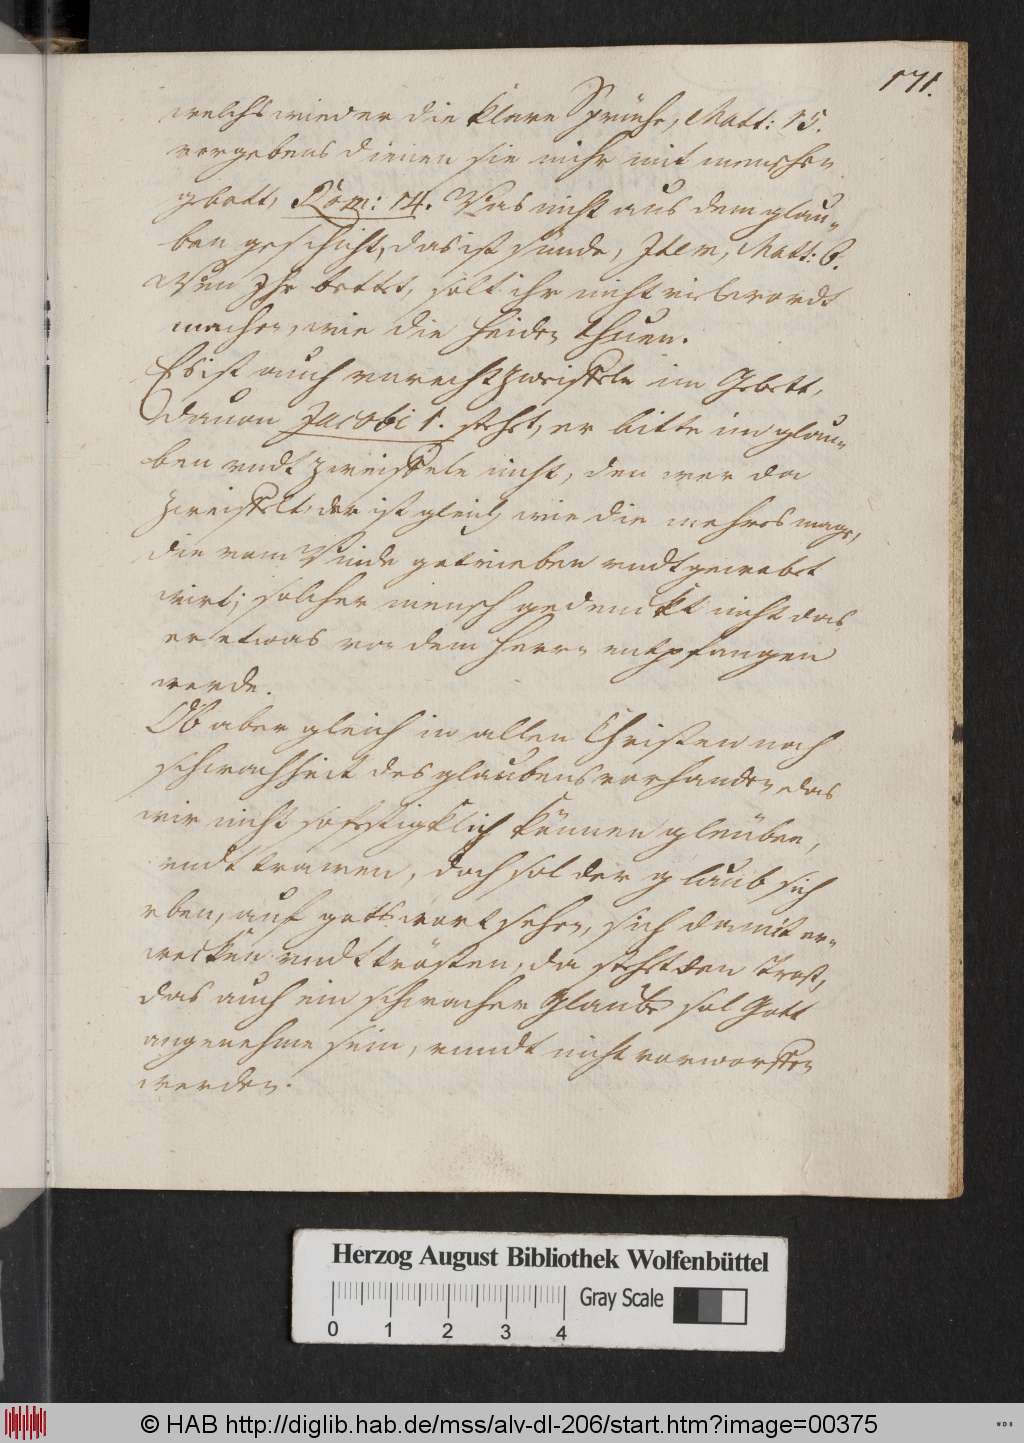 171.
welchs wieder die klere Sprüche, Matt: 15.
vergebens dienen sie mihr mit menschen
gebott, Rom: 14. Was nicht aus dem glau-
ben geschicht, das ist sünde, Item, Matt: 6.
Wen Ihr bettet, solt ihr nicht viel wordt
machen, wie die Heiden thuen.
Es ist auch unrecht zweiffeln im Gebett,
dauon Jacobi 1. stehet, er bitte im glau-
ben undt zweiffele nicht, den wer da
zweiffelt, der ist gleich wie die mehres woge,
die vom Winde getrieben undt gewebet
wirt; solcher mensch gedenckt nicht das
er etwas von dem Herrn entpfangen
werde.
Ob aber gleich in allen Christen noch
schwachheit des glaubens vorhanden, das
wir nicht so festigklich können gleuben,
undt trawen, doch sol der glaub sich
eben, auf gotts wort sehen, sich damit er-
wecken undt trösten, da stehet den Trost,
das auch ein schwacher Glaube sol Gott
angenehme sein, unndt nicht vorworffen
werden.
Herzog August Bibliothek Wolfenbüttel
Gray Scale
0 1 2 3 4
© HAB http://diglib.hab.de/mss/alv-dl-206/start.htm?image=00375